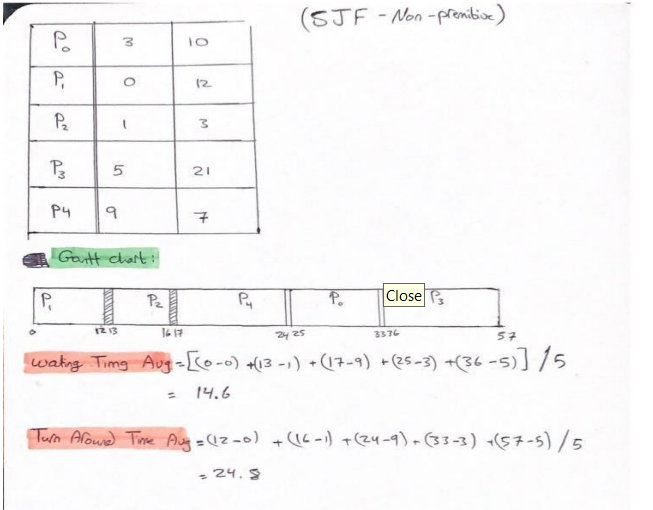 (SJF - Non-premitive)
P0 3 10
P1 0 12
P2 1 3
P3 5 21
P4 9 7
Gantt chart:
P1 P2 P4 P0 Close P3
0 12 13 16 17 24 25 33 36 57
wating Timg Avg = [(0-0) +(13-1) +(17-9) +(25-3) +(36-5)] / 5
= 14.6
Turn Around Time Avg = (12-0) + (16-1) + (24-9) + (33-3) + (57-5) / 5
= 24.8